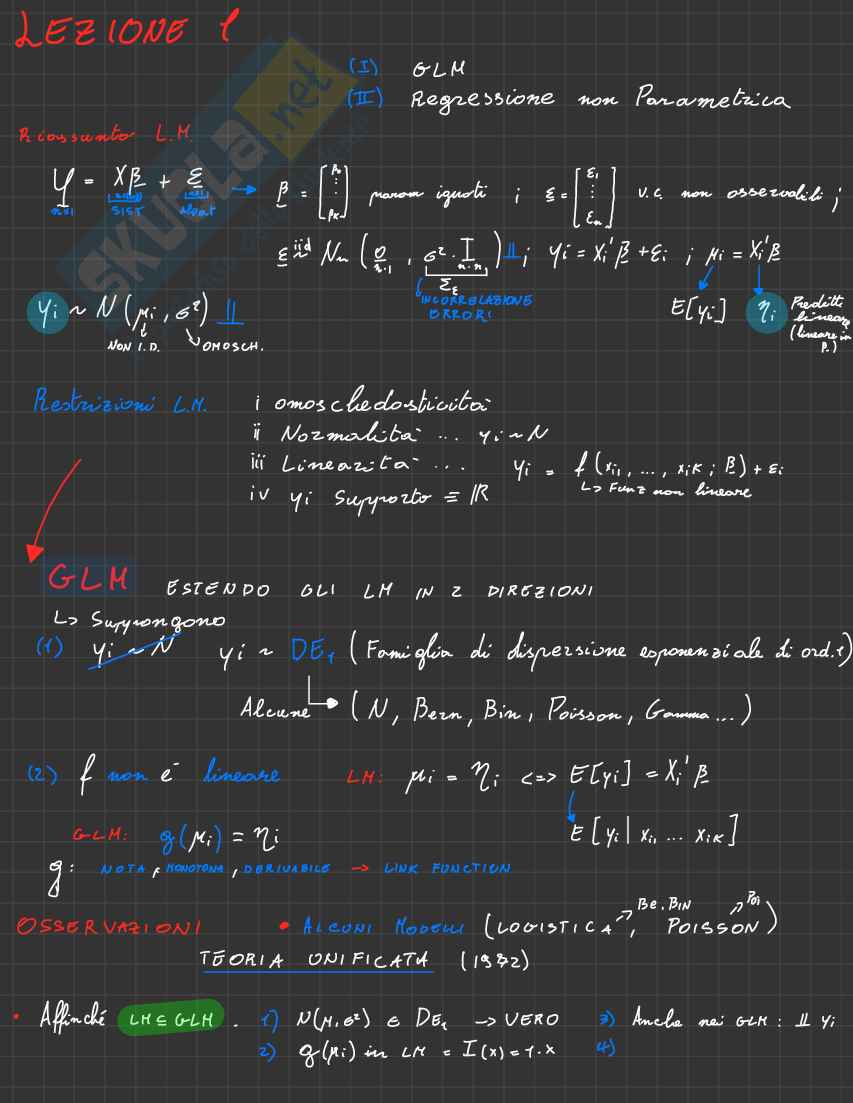 LEZIONE 1
(I) GLM
(II) Regressione non Parametrica
Riassunto L.M.
Y = Xβ + ε → β = [β0 ⋮ βK] param ignoti ; ε = [ε1 ⋮ εn] v.c. non osservabili ;
n×1 SIST
ε iid ~ Nn (0 n·1 , σ² · I n·n) ⫫ ; yi = Xi'β + εi ; μi = Xi'β
Σε
INCORRELAZIONE ERRORI
E[yi] ηi Predit. lineare (lineare in β.)
yi ~ N (μi , σ²) ⫫
NON I.D. OMOSCH.
Restrizioni L.M. i omoschedasticità
ii Normalità ... yi ~ N
iii Linearità ... yi = f(xi1, ..., xiK ; β) + εi
↳ Funz non lineare
iv yi Supporto ≡ ℝ
GLM ESTENDO GLI LM IN 2 DIREZIONI
↳ Suppongono
(1) yi ~ N yi ~ DE1 (Famiglia di dispersione esponenziale di ord.1)
Alcune (N, Bern, Bin, Poisson, Gamma...)
(2) f non è lineare LM: μi = ηi <=> E[yi] = Xi'β
GLM: g(μi) = ηi E[yi | xi1 ... xiK]
g: NOTA, MONOTONA, DERIVABILE → LINK FUNCTION
OSSERVAZIONI • ALCUNI MODELLI (LOGISTICA ↗ Be. BIN, POISSON ↗ Poi)
TEORIA UNIFICATA (1972)
• Affinché LM ⊆ GLM . 1) N(μ, σ²) ∈ DE1 → VERO 3) Anche nei GLM : ⫫ yi
2) g(μi) in LM = I(x) = 1·x 4)
SKUOLA.net